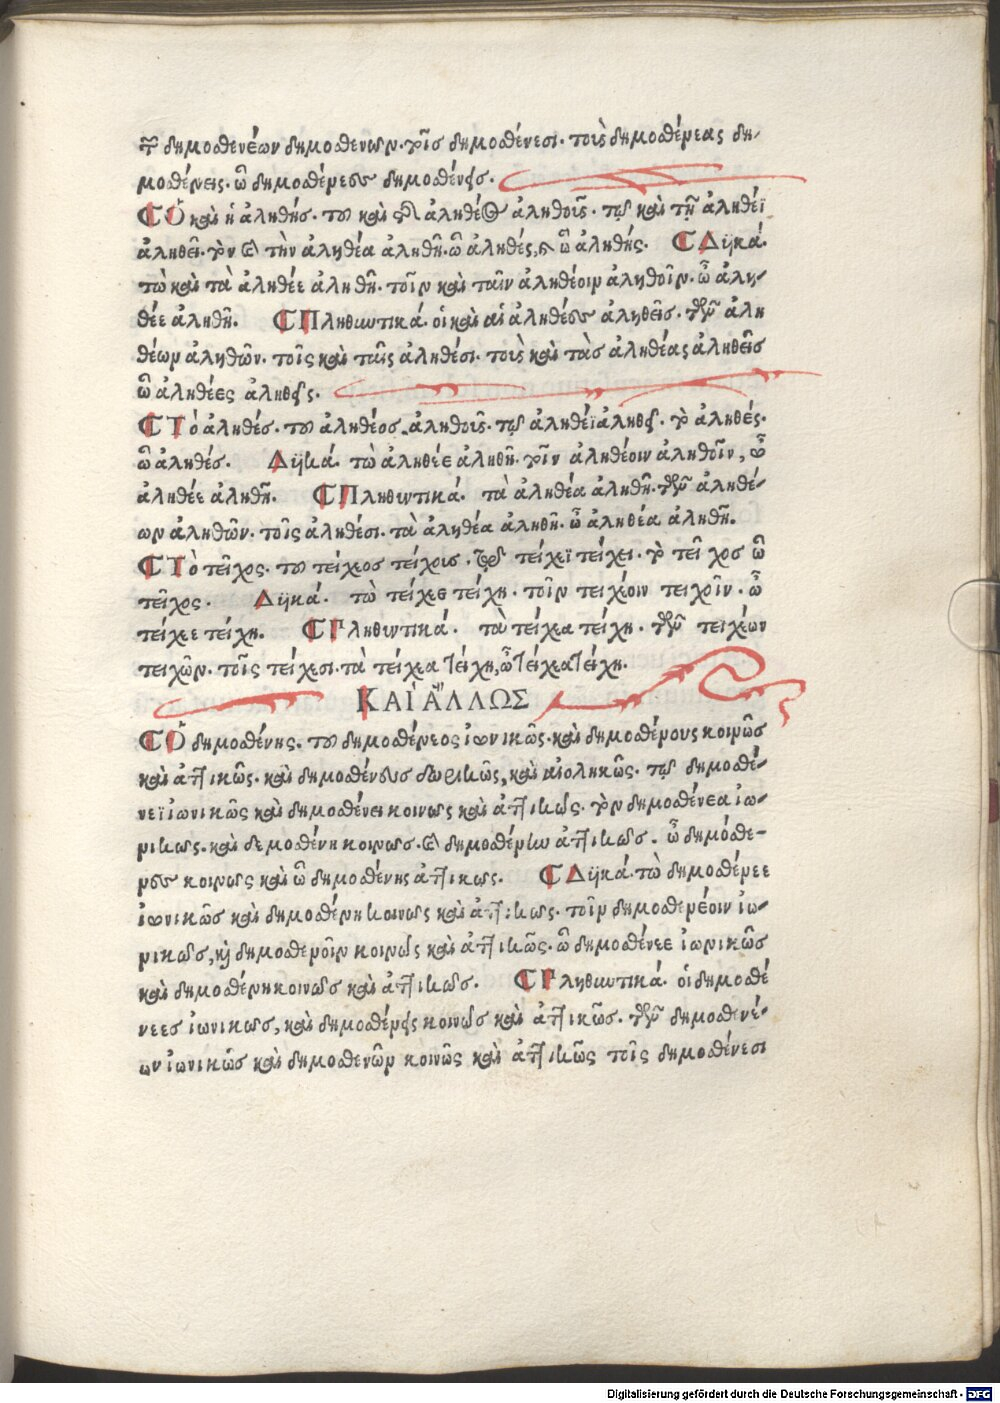 τῶν δημοσθενέων δημοσθενων. τοῖσ δημοσθένεσι. τοὺς δημοσθένεας δη-
μοσθένεις. ὦ δημοσθένεες δημοσθένεις.
Ὁ καὶ ἡ ἀληθής. του καὶ τῆς ἀληθέος ἀληθοῦς. τῷ καὶ τῇ ἀληθέϊ
ἀληθεῖ. τὸν καὶ τὴν ἀληθέα ἀληθῆ. ὦ ἀληθές, καὶ ὦ ἀληθής. Δϋκά.
τὼ καὶ τὰ ἀληθέε ἀληθῆ. τοῖν καὶ ταῖν ἀληθέοιν ἀληθοῖν. ὦ ἀλη-
θέε ἀληθῆ. Πληθωτικά. οἱ καὶ αἱ ἀληθέες ἀληθεῖς. τῶν ἀλη
θέων ἀληθῶν. τοῖς καὶ ταῖς ἀληθέσι. τοὺς καὶ τὰσ ἀληθέας ἀληθεῖσ
ὦ ἀληθέες ἀληθεῖς.
Τὸ ἀληθές. του ἀληθέοσ. ἀληθοῦς. τῷ ἀληθέϊ ἀληθεῖ. τὸ ἀληθές.
ὦ ἀληθέσ. Δϋκά. τὼ ἀληθέε ἀληθῆ. τοῖν ἀληθέοιν ἀληθοῖν, ὦ
ἀληθέε ἀληθῆ. Πληθωτικά. τὰ ἀληθέα ἀληθῆ. τῶν ἀληθέ-
ων ἀληθῶν. τοῖς ἀληθέσι. τὰ ἀληθέα ἀληθῆ. ὦ ἀληθέα ἀληθῆ.
Τὸ τεῖχος. του τείχεοσ τείχους. τῷ τείχεϊ τείχει. τὸ τεῖχοσ ὦ
τεῖχος. Δϋκά. τὼ τείχεε τείχη. τοῖν τειχέοιν τειχοῖν. ὦ
τείχεε τείχη. Πληθωτικά. τὰ τείχεα τείχη. τῶν τειχέων
τειχῶν. τοῖς τείχεσι. τὰ τείχεα τείχη, ὦ τείχεα τείχη.
ΚΑΙ ἌΛΛΩΣ
Ὁ δημοσθένης. του δημοσθένεος ἰωνικῶς. καὶ δημοσθένους κοινῶσ
καὶ ἀττικῶς. καὶ δημοσθένευσ δωρικῶς, καὶ αἰοληκῶς. τῷ δημοσθέ-
νεϊ ἰωνικῶς καὶ δημοσθένει κοινως καὶ ἀττικῶς. τὸν δημοσθένεα ἰω-
νικως. καὶ δεμοσθένη κοινωσ. καὶ δημοσθένην ἀττικωσ. ὦ δημόσθε-
νες κοινως καὶ ὦ δημοσθένης ἀττικως. Δϋκά. τὼ δημοσθένεε
ἰωνικῶσ καὶ δημοσθένη κοινως καὶ ἀττικως. τοῖν δημοσθενέοιν ἰω-
νικωσ, καὶ δημοσθενοῖν κοινῶς καὶ ἀττικῶς. ὦ δημοσθένεε ἰωνικῶσ
καὶ δημοσθένη κοινωσ καὶ ἀττικωσ. Πληθωτικά. οἱ δημοσθέ
νεεσ ἰωνικωσ, καὶ δημοσθένεις κοινῶσ καὶ ἀττικῶσ. τῶν δημοσθενέ-
ων ἰωνικῶσ καὶ δημοσθενῶν κοινῶς καὶ ἀττικῶς τοῖς δημοσθένεσι
Digitalisierung gefördert durch die Deutsche Forschungsgemeinschaft - DFG